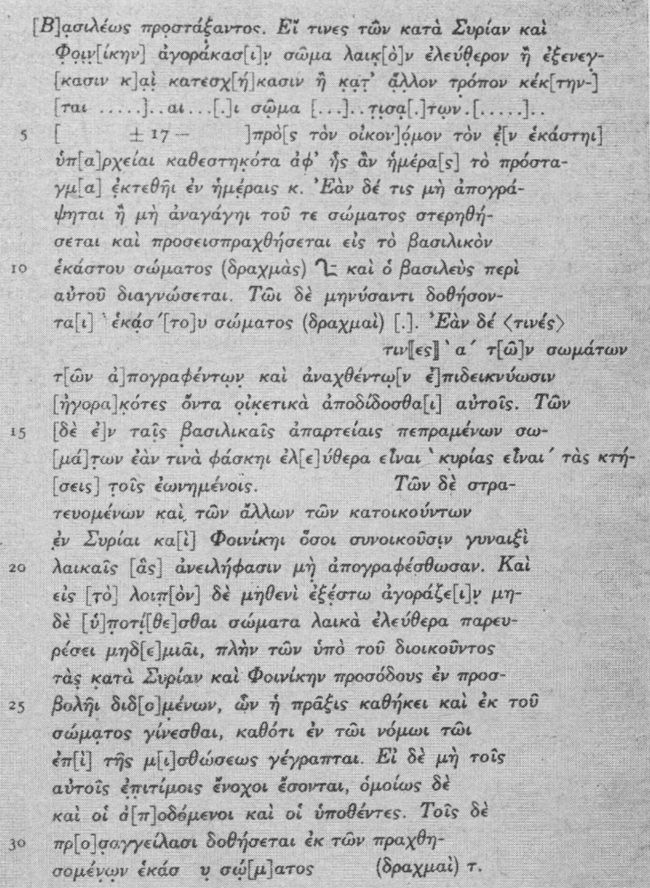 [Β]ασιλέως προστάξαντος. Εἴ τινες τῶν κατὰ Συρίαν καὶ
Φοιν[ίκην] ἀγοράκασ[ι]ν σῶμα λαικ[ὸ]ν ἐλεύθερον ἢ ἐξενεγ-
[κασιν κ]αὶ κατεσχ[ή]κασιν ἢ κατ' ἄλλον τρόπον κέκ[την-]
[ται .....]..αι...[.]ι σῶμα [...]..τισα[.]των.[.....]..
5 [ ± 17 – ]πρὸ[ς τὸν οἰκον]όμον τὸν ἐ[ν ἑκάστηι]
ὑπ[α]ρχείαι καθεστηκότα ἀφ' ἧς ἂν ἡμέρα[ς] τὸ πρόστα-
γμ[α] ἐκτεθῆι ἐν ἡμέραις κ. Ἐὰν δέ τις μὴ ἀπογρά-
ψηται ἢ μὴ ἀναγάγηι τοῦ τε σώματος στερηθή-
σεται καὶ προσεισπραχθήσεται εἰς τὸ βασιλικὸν
10 ἑκάστου σώματος (δραχμὰς) καὶ ὁ βασιλεὺς περὶ
αὐτοῦ διαγνώσεται. Τῶι δὲ μηνύσαντι δοθήσον-
τα[ι] ἑκάσ'[το]υ σώματος (δραχμαὶ) [.]. Ἐὰν δέ ⟨τινές⟩
τιν⟦ες⟧ ` α ´ τ[ῶ]ν σωμάτων
τ[ῶν ἀ]πογραφέντων καὶ ἀναχθέντω[ν ἐ]πιδεικνύωσιν
[ἠγορα]κότες ὄντα οἰκετικὰ ἀποδίδοσθα[ι] αὐτοῖς. Τῶν
15 [δὲ ἐ]ν ταῖς βασιλικαῖς ἀπαρτείαις πεπραμένων σω-
[μά]των ἐὰν τινὰ φάσκηι ἐλ[ε]ύθερα εἶναι ` κυρίας εἶναι ´ τὰς κτή-
[σεις] τοῖς ἐωνημένοις. Τῶν δὲ στρα-
τευομένων καὶ τῶν ἄλλων τῶν κατοικούντων
ἐν Συρίαι κα[ὶ] Φοινίκηι ὅσοι συνοικοῦσιν γυναιξὶ
20 λαικαῖς [ἃς] ἀνειλήφασιν μὴ ἀπογραφέσθωσαν. Καὶ
εἰς [τὸ] λοιπ[ὸν] δὲ μηθενὶ ἐξέστω ἀγοράζε[ι]ν μη-
δὲ [ὑ]ποτί[θε]σθαι σώματα λαικὰ ἐλεύθερα παρευ-
ρέσει μηδ[ε]μιᾶι, πλὴν τῶν ὑπὸ τοῦ διοικοῦντος
τὰς κατὰ Συρίαν καὶ Φοινίκην προσόδους ἐν προσ-
25 βολῆι διδ[ο]μένων, ὧν ἡ πρᾶξις καθήκει καὶ ἐκ τοῦ
σώματος γίνεσθαι, καθότι ἐν τῶι νόμωι τῶι
ἐπ[ὶ] τῆς μ[ι]σθώσεως γέγραπται. Εἰ δὲ μὴ τοῖς
αὐτοῖς ἐπιτίμοις ἔνοχοι ἔσονται, ὁμοίως δὲ
καὶ οἱ ἀ[π]οδόμενοι καὶ οἱ ὑποθέντες. Τοῖς δὲ
30 πρ[ο]σαγγείλασι δοθήσεται ἐκ τῶν πραχθη-
σομένων ἑκάσ υ σώ[μ]ατος (δραχμαὶ) τ.